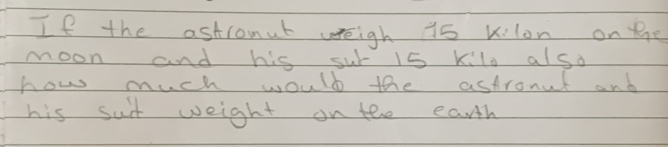 If the astronut weigh 15 kilon on the
moon and his sut 15 kilo also
how much would the astronut and
his suit weight on the earth